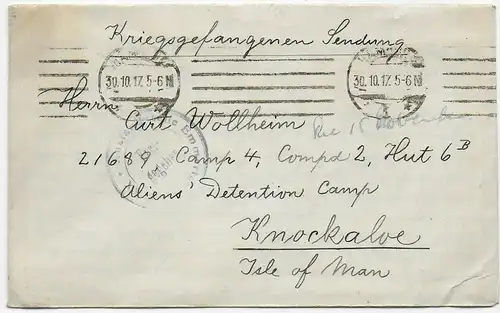 Kriegsgefangenen Sendung
30.10.17. 5-6 N
30.10.17. 5-6 N
Herrn
Curt Wollheim
21689 Camp 4, Compd 2, Hut 6B
Aliens' Detention Camp
Knockaloe
Isle of Man